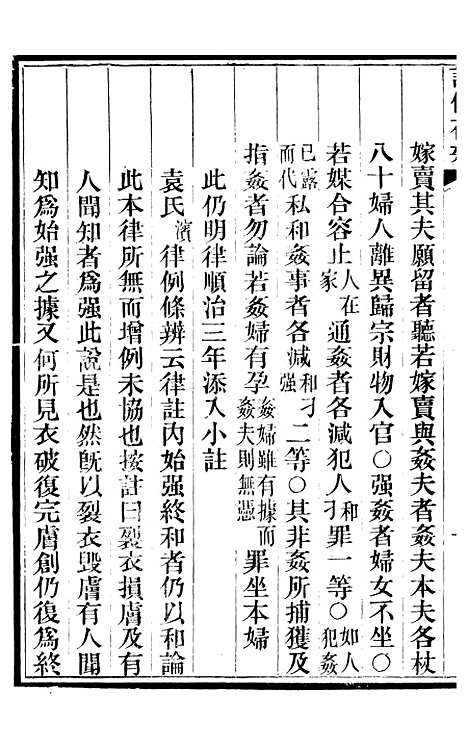 嫁賣其夫願留者聽若嫁賣與姦夫者姦夫本夫各杖
八十婦人離異歸宗財物入官○强姦者婦女不坐○
若媒合容止人在家通姦者各減犯人和刁罪一等○如人犯姦
已露而代私和姦事者各減和刁强二等○其非姦所捕獲及
指姦者勿論若姦婦有孕姦婦雖有據而姦夫則無憑罪坐本婦
此仍明律順治三年添入小註
袁氏濱律例條辨云律註內始强終和者仍以和論
此本律所無而增例未協也按註曰裂衣損膚及有
人聞知者爲强此說是也然旣以裂衣毁膚有人聞
知爲始强之據又何所見衣破復完膚創仍復爲終